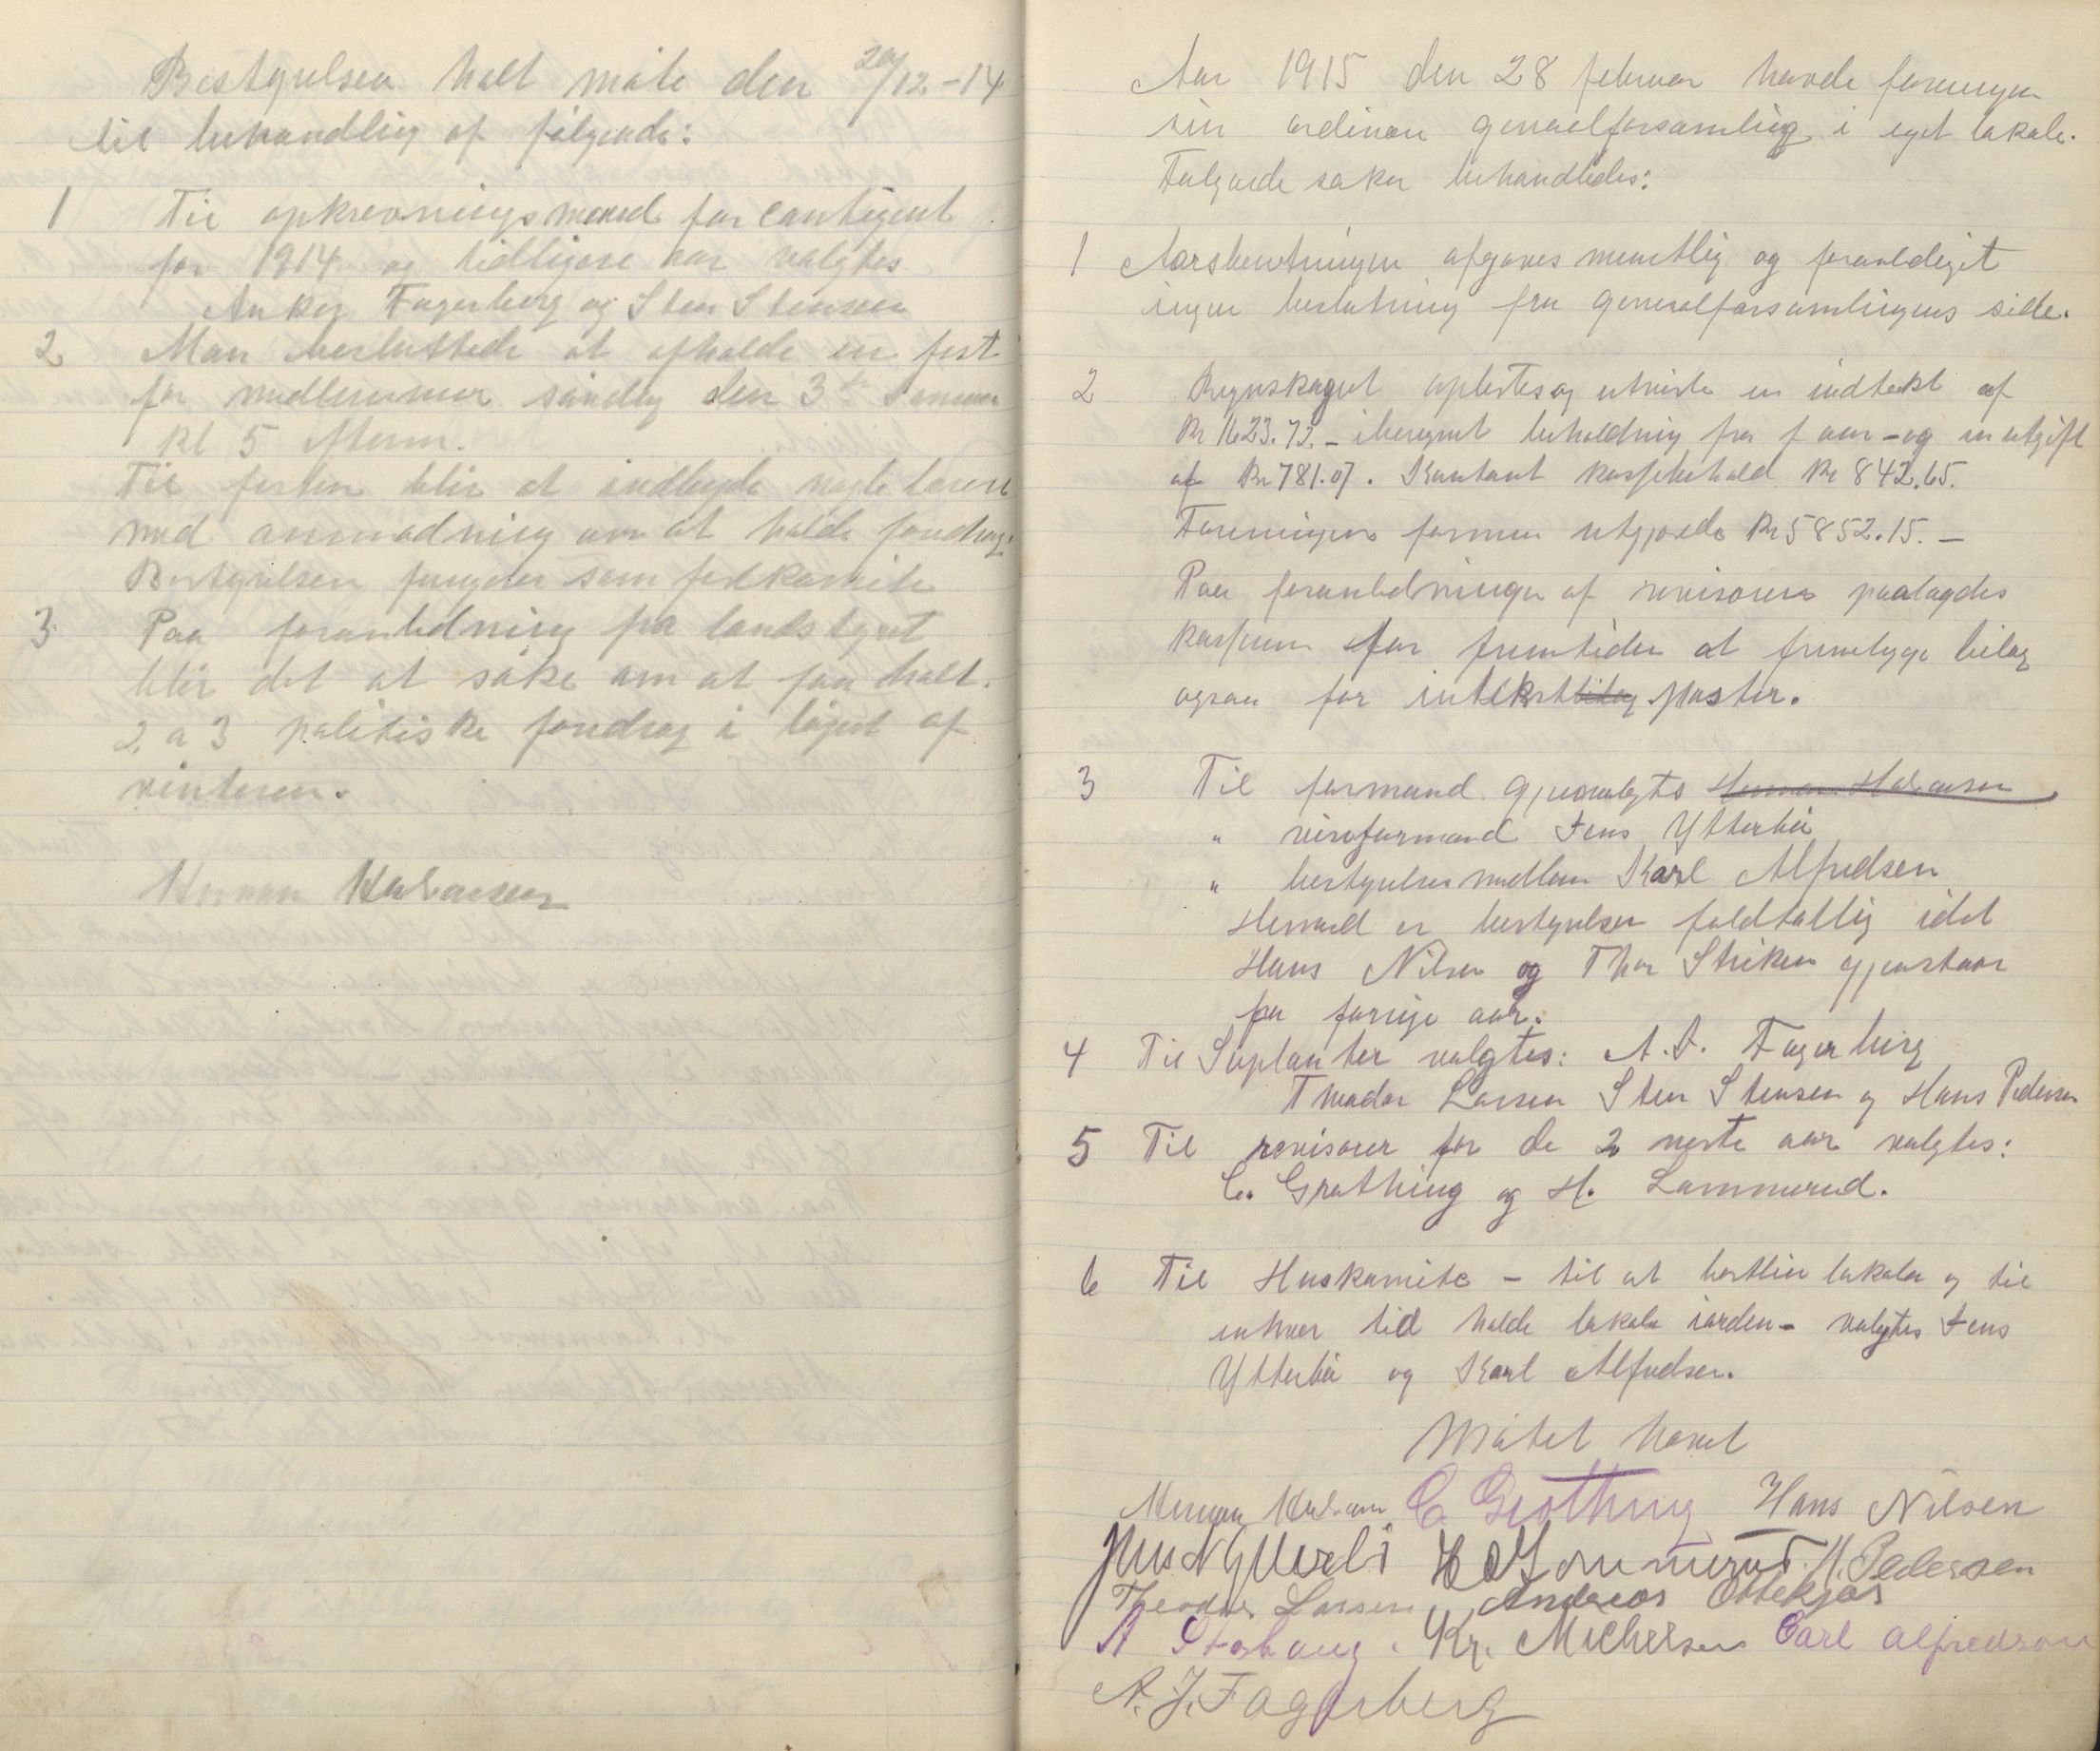 Bestyrelsen halt møte den 20/12-14
til behandling af følgende:
1 Til opkrævningsmænd for contigent
for 1914 og tidligere aar valgtes
Anker Fagerberg og Sten Stensen
2 Man besluttede at afholde en fest
for medlemmer søndag den 3de Januar
kl 5 efterm.
Til festen blir at indbyde nogle lærere
med anmodning om at holde foredrag.
Bestyrelsen fungerer som festkomite
3 Paa foranledning fra landstyret
blir det at søke om at faa halt
2 a 3 politiske foredrag i løpet af
vinteren.
Herman
Aar 1915 den 28 februar havde foreningen
sin ordinære generalforsamling i eget lokale.
Følgende saker behandledes:
1 Aarsberetningen afgaves muntlig og foranlediget
ingen beslutning fra generalforsamlingens side.
2 Regnskapet oplæstes og utviste en indtekt af
Kr 1623.72 - iberegnet beholdning fra f aar - og en utgift
af Kr 781.07. Kontant kassebehold Kr 842.65.
Foreningens formue utgjorde Kr 5852.15. -
Paa foranledningen af revisorerne paalagdes
kasseren for fremtiden at fremlægge bilag
ogsaa for intektsbilag poster.
3 Til formand gjenvalgtes Herman
" viseformand Jens Ytterbø
" bestyrelsesmedlem Karl Alfredsen
Hermed er bestyrelsen fuldtallig idet
Hans Nilsen og Thor gjenstaar
fra forrige aar.
4 Til Suplanter valgtes: A. J. Fagerberg
Theodor Larsen Sten Stensen og Hans Pedersen
5 Til revisorer for de 2 neste aar valgtes:
C. Grøthing og H. Lammerud.
6 Til Huskomite - til at bortleie lokalet og til
enhver tid holde lokalet iorden - valgtes Jens
Ytterbø og Karl Alfredsen.
Møtet hævet
Herman C Grøthing Hans Nilsen
H. Pedersen
Theodor Larsen Andreas
A Kr. Michelsen Carl Alfredson
A. J. Fagerberg